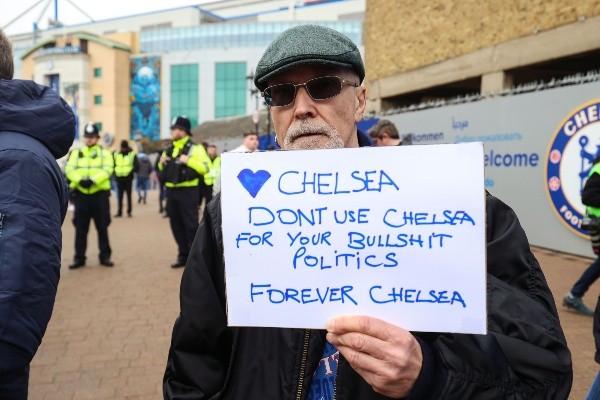 CHELSEA
DONT USE CHELSEA
FOR YOUR BULLSHIT
POLITICS
FOREVER CHELSEA
Welcome